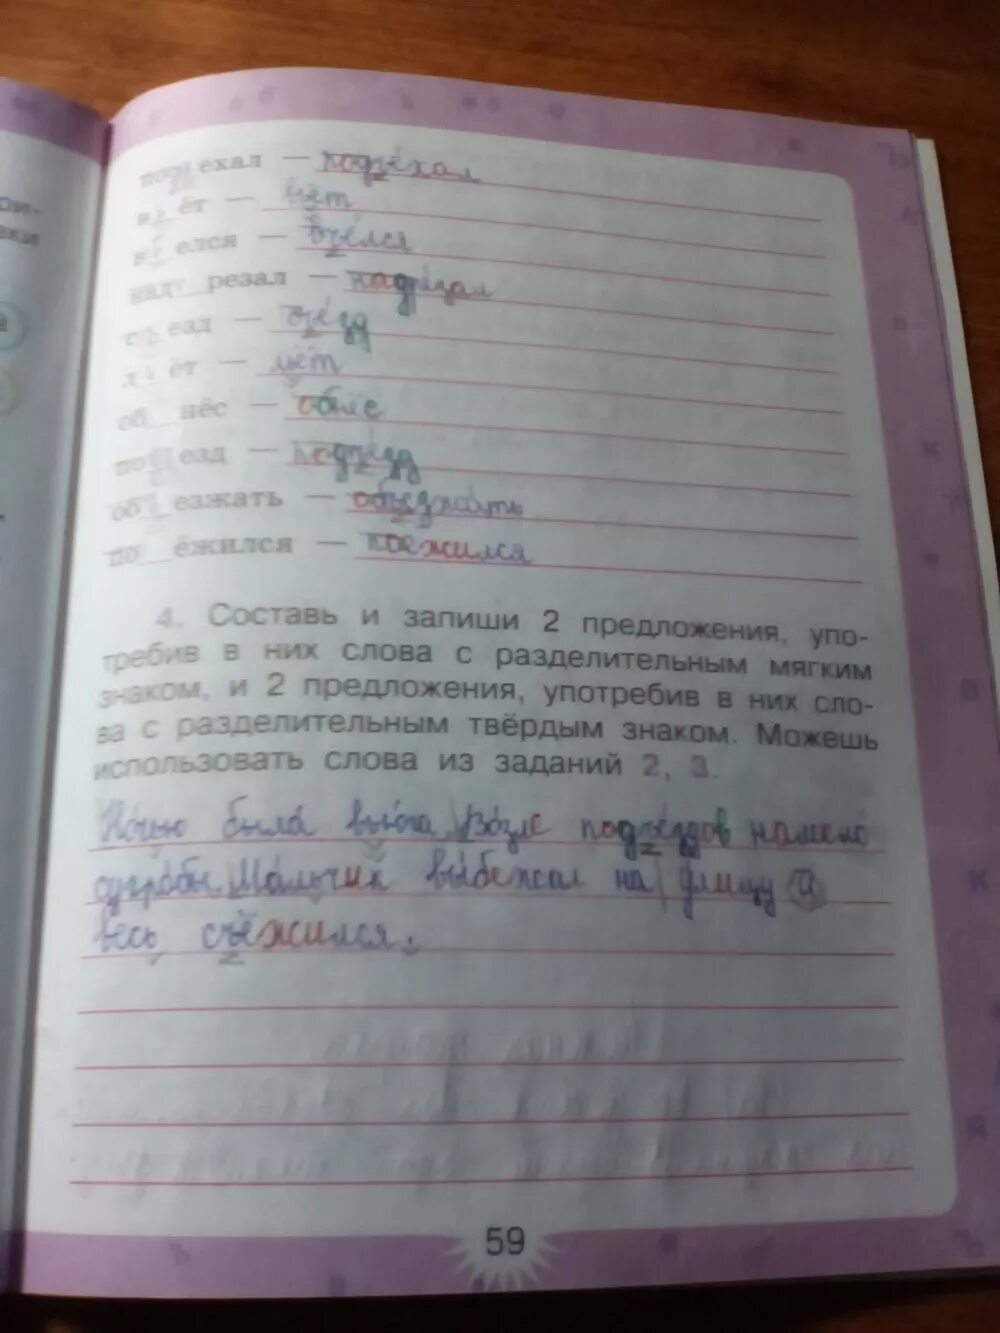 под ехал — подъехал
в ёт — вьёт
в елся — въелся
над резал — надрезал
с езд — съезд
л ёт — льёт
об нёс — обнёс
по езд — подъезд
об езжать — объезжать
по ёжился — поёжился
4. Составь и запиши 2 предложения, упо-
требив в них слова с разделительным мягким
знаком, и 2 предложения, употребив в них сло-
ва с разделительным твёрдым знаком. Можешь
использовать слова из заданий 2, 3.
Ночью была вьюга. Возле подъездов намело
сугробы. Мальчик выбежал на улицу и
весь съёжился.
59